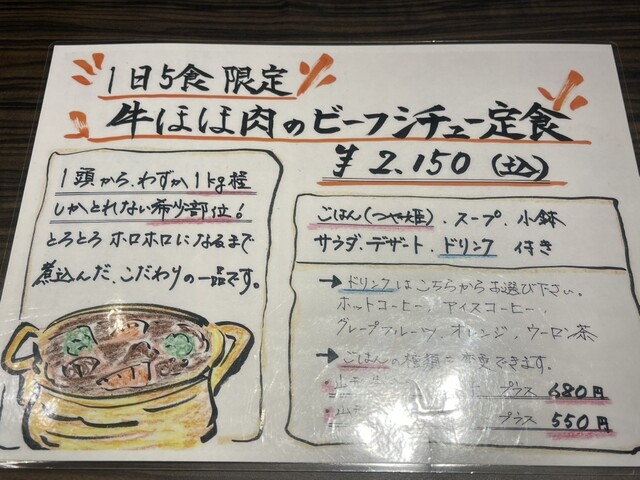 1日5食 限定
牛ほほ肉のビーフシチュー定食
¥2.150(税込)
1頭から、わずか1kg程
しかとれない希少部位!
とろとろ ホロホロになるまで
煮込んだ、こだわりの一品です。
ごはん(つや姫)、スープ、小鉢
サラダ、デザート、ドリンク 付き
→ドリンクはこちらからお選び下さい。
ホットコーヒー、アイスコーヒー、
グレープフルーツ、オレンジ、ウーロン茶
→ごはんの種類を変更できます。
プラス 680円
プラス 550円